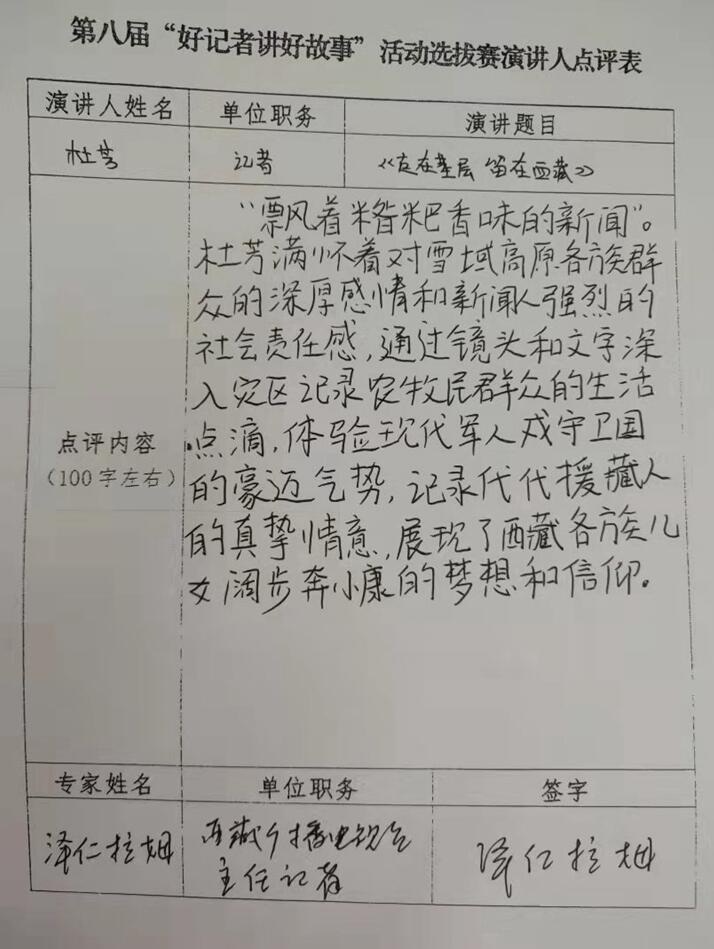 第八届“好记者讲好故事”活动选拔赛演讲人点评表
演讲人姓名 单位职务 演讲题目
杜芳 记者 《走在基层 留在西藏》
“飘风着糌粑香味的新闻”。
杜芳满怀着对雪域高原各族群
众的深厚感情和新闻人强烈的
社会责任感，通过镜头和文字深
入灾区记录农牧民群众的生活
点评内容
（100字左右）
点滴，体验现代军人戍守卫国
的豪迈气势，记录代代援藏人
的真挚情意，展现了西藏各族儿
女阔步奔小康的梦想和信仰。
专家姓名 单位职务 签字
泽仁拉姆 西藏广播电视台 泽仁拉姆
主任记者